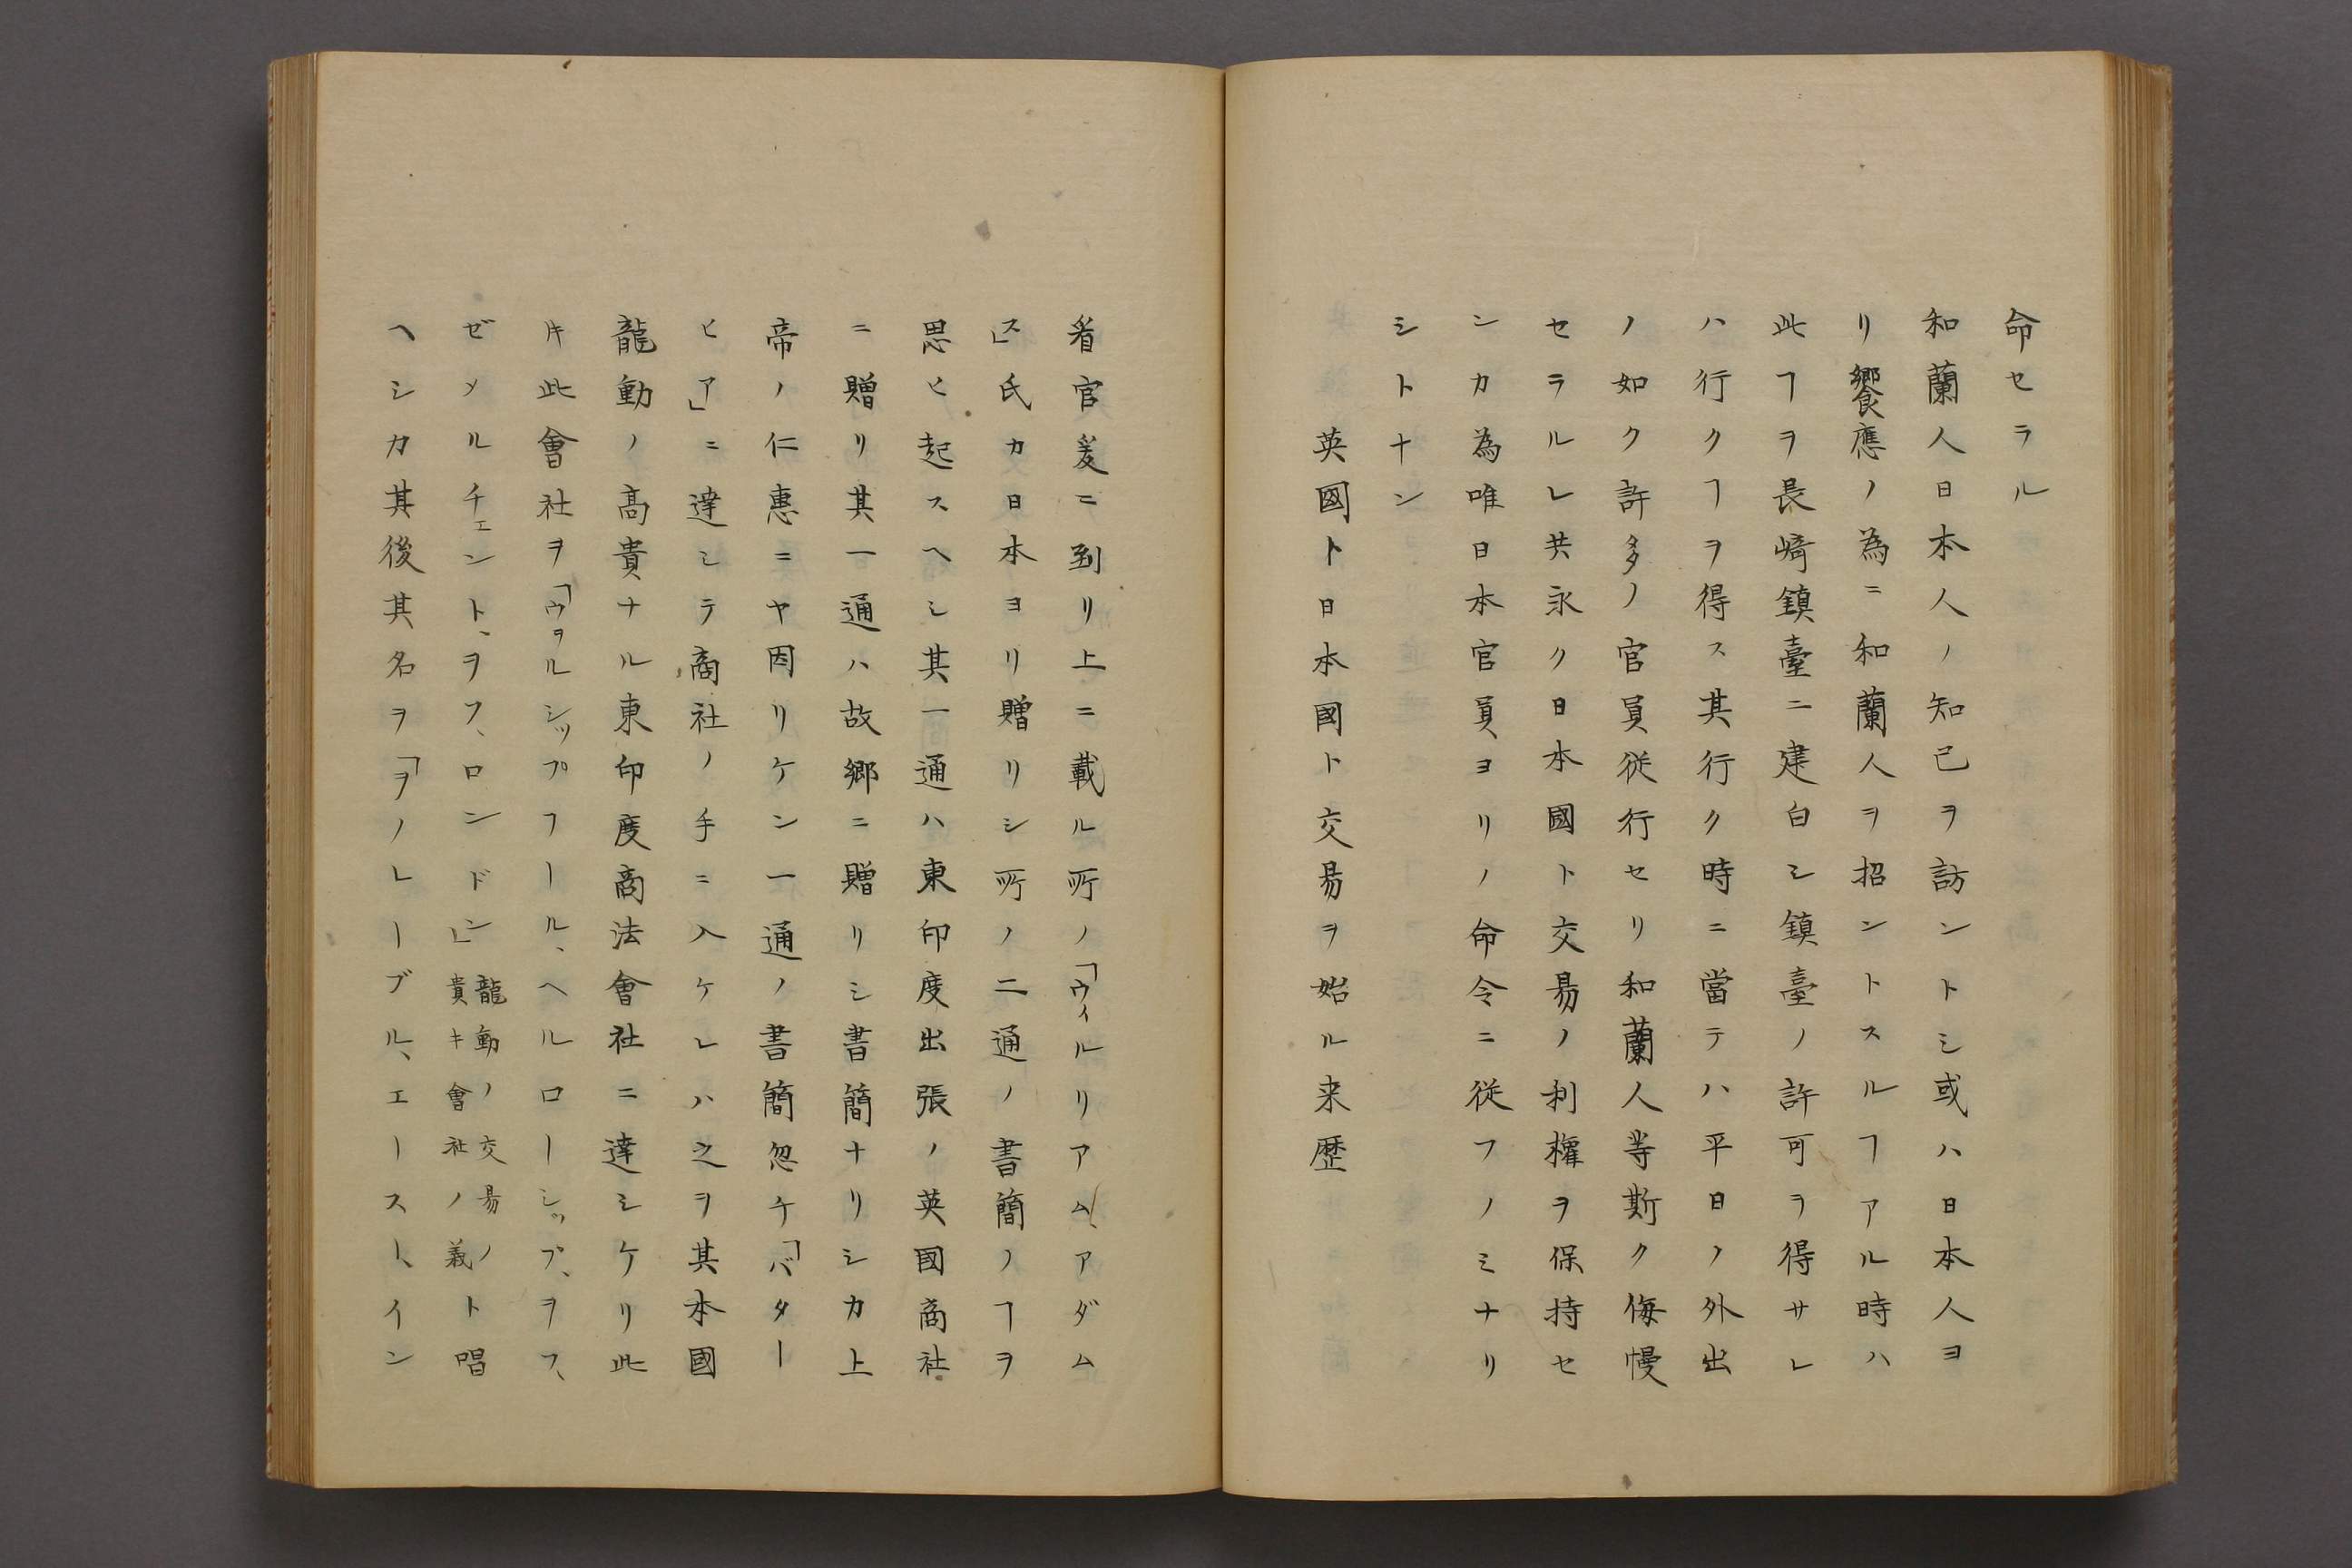 命セラル
和蘭人日本人ノ知己ヲ訪ントシ或ハ日本人ヨ
リ饗應ノ為ニ和蘭人ヲ招ントスルヿアル時ハ
此ヿヲ長崎鎮臺ニ建白シ鎮臺ノ許可ヲ得サレ
ハ行クヿヲ得ス其行ク時ニ當テハ平日ノ外出
ノ如ク許多ノ官員従行セリ和蘭人等斯ク侮慢
セラルレ共永ク日本國ト交易ノ利権ヲ保持セ
ンカ為唯日本官員ヨリノ命令ニ従フノミナリ
シトナン
英國ト日本國ト交易ヲ始ル来歴
看官爰ニ到リ上ニ載ル所ノ「ウィルリアム、アダム
ス」氏カ日本ヨリ贈リシ所ノ二通ノ書簡ノヿヲ
思ヒ起スヘシ其一通ハ東印度出張ノ英國商社
ニ贈リ其一通ハ故郷ニ贈リシ書簡ナリシカ上
帝ノ仁惠ニヤ因リケン一通ノ書簡忽チ「バター
ヒア」ニ達シテ商社ノ手ニ入ケレハ之ヲ其本國
龍動ノ高貴ナル東印度商法會社ニ達シケリ此
𪜈此會社ヲ「ウヲルシップフール、ヘルローシップ、ヲフ、
ゼメルチェント、ヲフ、ロンドン」龍動ノ交易ノ貴キ會社ノ義ト唱
ヘシカ其後其名ヲ「ヲノレーブル、エースト、イン